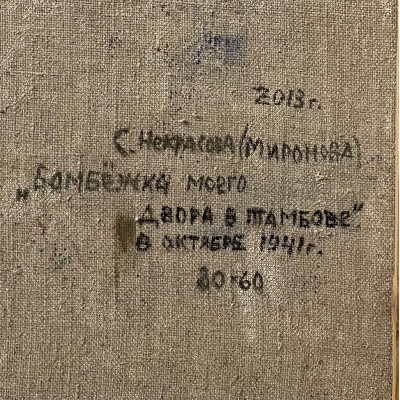 2013 г.
С. Некрасова (Миронова)
„Бомбёжка моего
двора в Тамбове"
в октябре 1941 г.
80-60